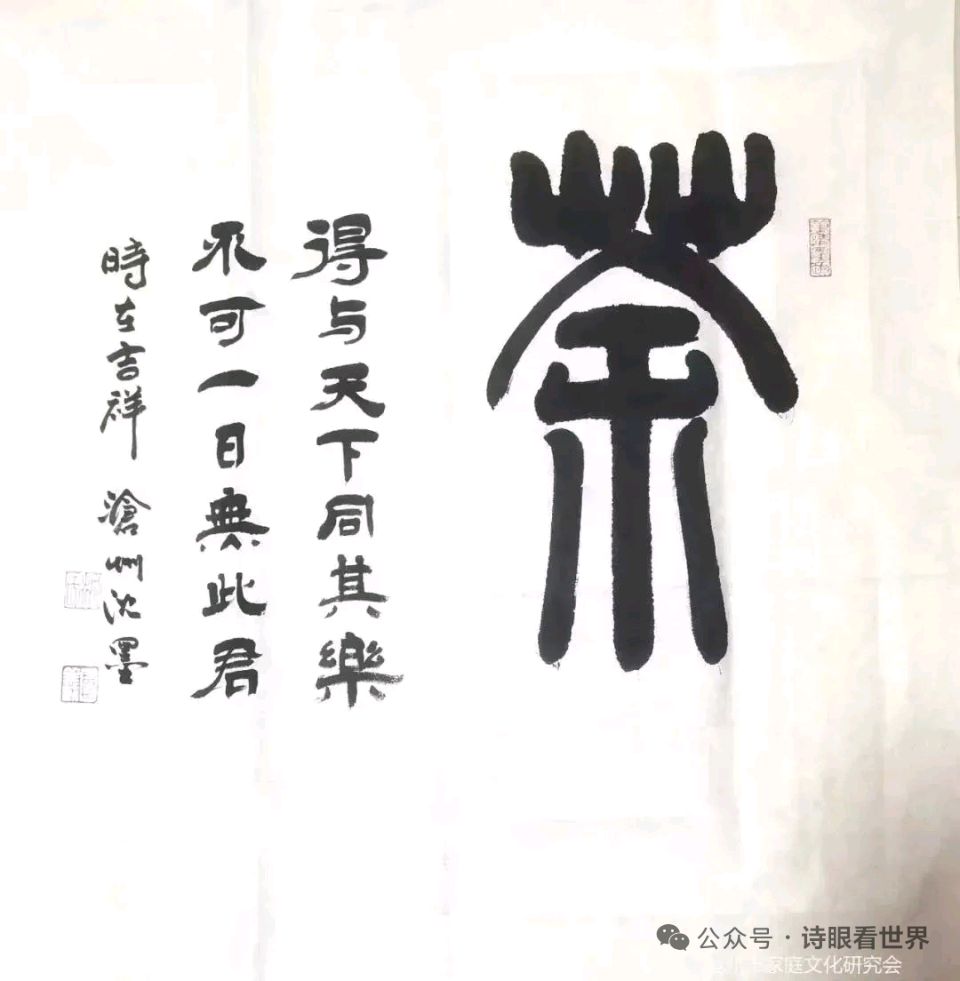 茶
得与天下同其樂
不可一日無此君
時在吉祥 滄州沈墨
公众号·诗眼看世界
家庭文化研究会